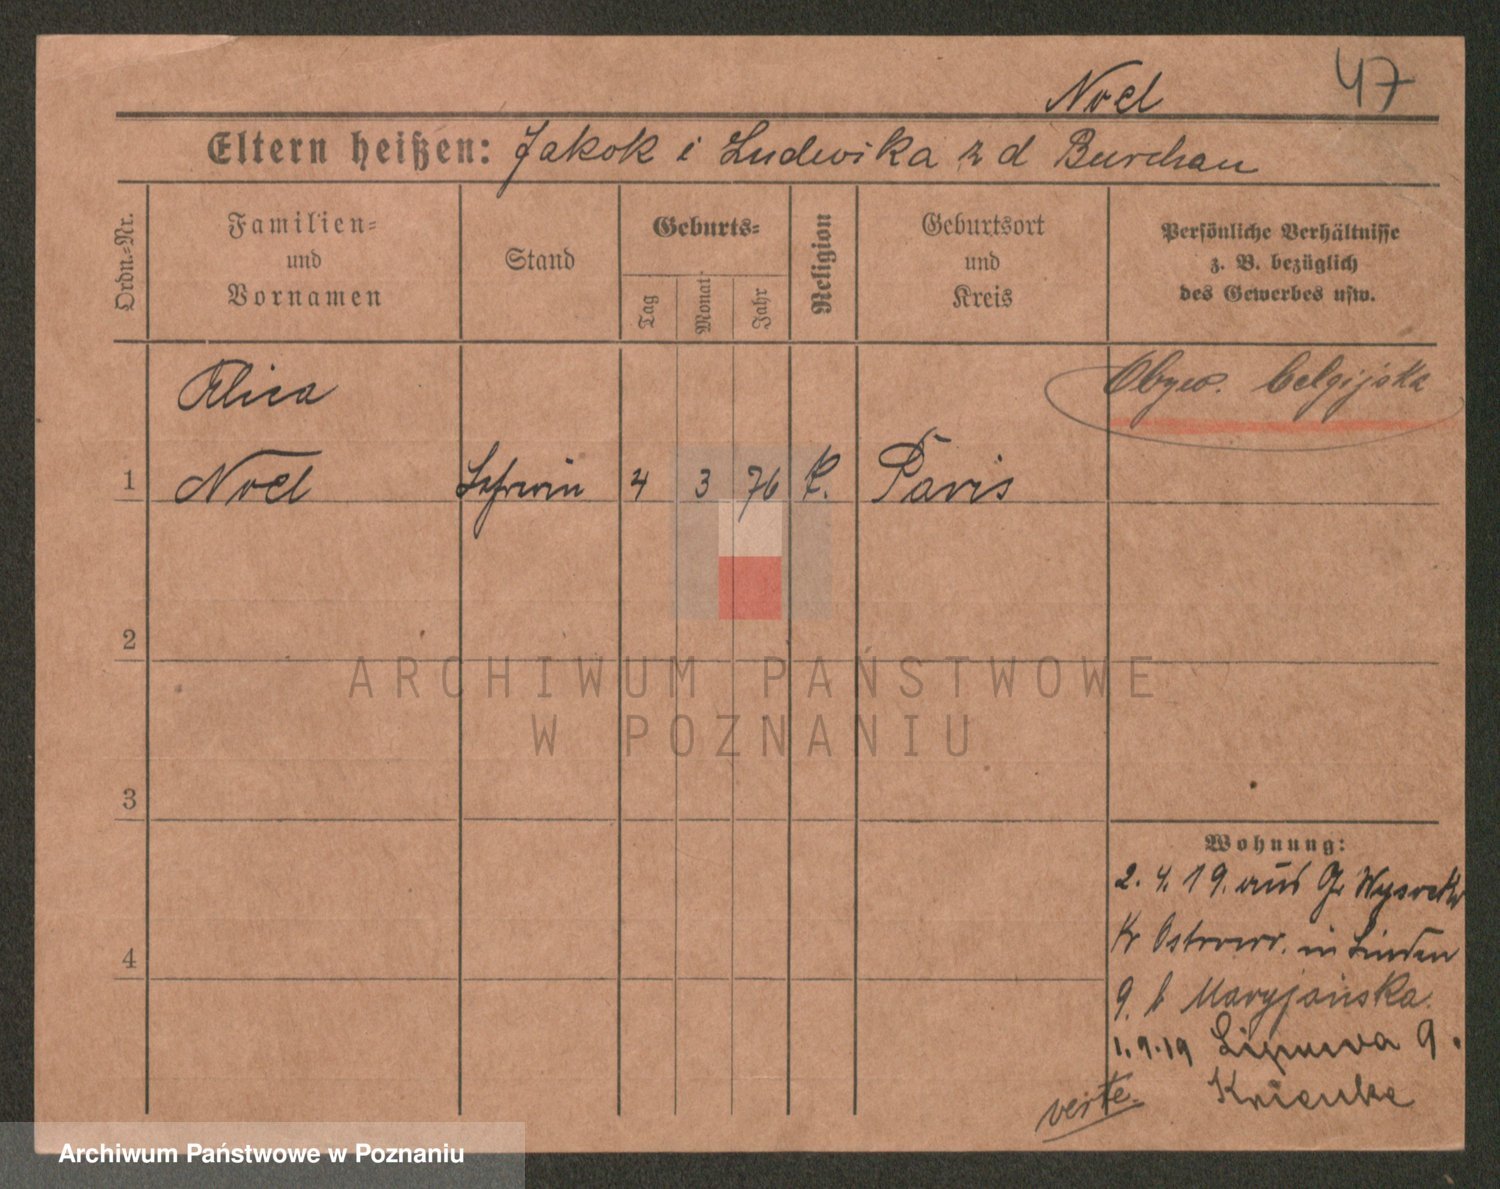 Noel
47
Eltern heißen: Jakok i Ludwika z d Burchau
Ordn.=Nr.
Familien=
und
Vornamen
Stand
Geburts=
Tag
Monat
Jahr
Religion
Geburtsort
und
Kreis
Persönliche Verhältnisse
z. B. bezüglich
des Gewerbes usw.
Alica
Obyw. belgijska
1 Noel Lehrerin 4 3 76 K. Paris
2
ARCHIWUM PAŃSTWOWE
W POZNANIU
3
Wohnung:
2. 4. 19. aus Gr Wysocko
4
Kr Ostrowo. in Linden
9. b Maryjańska.
1. 9. 19 Lipowa 9.
verte.
Archiwum Państwowe w Poznaniu